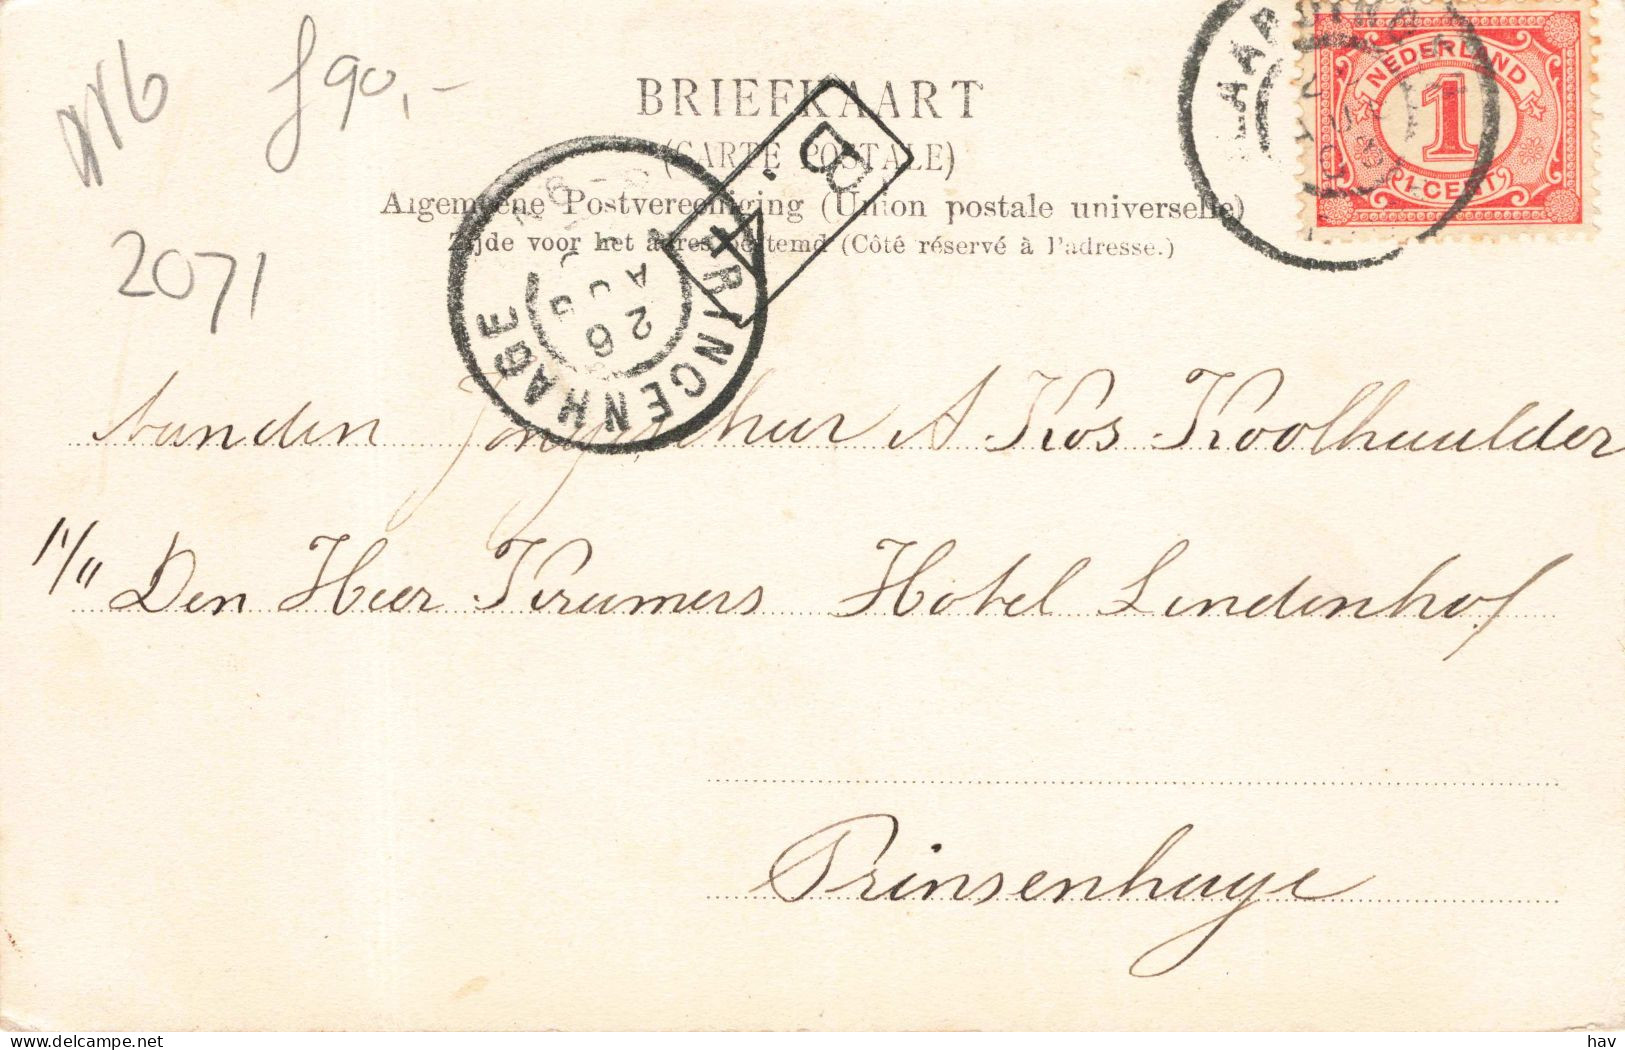 f 90,-
2071
BRIEFKAART
(CARTE POSTALE)
Algemeene Postvereeniging (Union postale universelle)
Zijde voor het adres bestemd (Côté réservé à l'adresse.)
NEDERLAND
1 1
1
1 CENT
PRINCENHAGE
26
AUG
B.D
4
Aan den Jongeheer A Kos Koolhaalder
Den Heer Kramers Hotel Lindenhof
Prinsenhage
hav